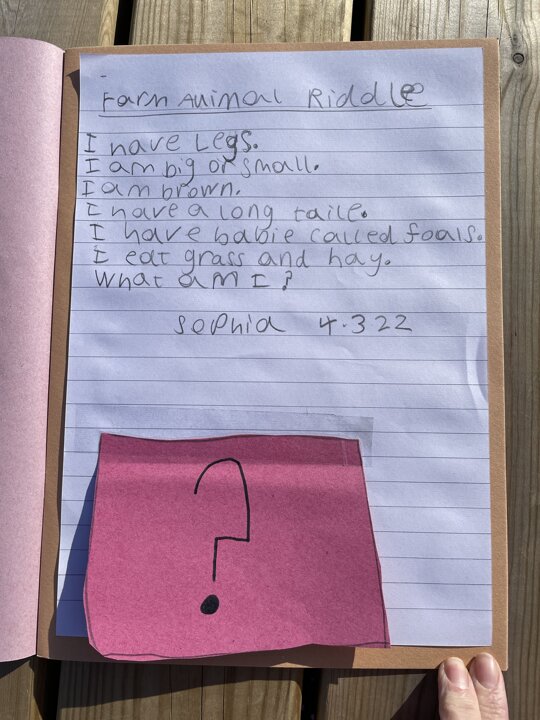 Farm Animal Riddle
I have Legs.
I am big or small.
I am brown.
I have a long taile.
I have babie called foals.
I eat grass and hay.
What am I?
Sophia 4.3 22
?